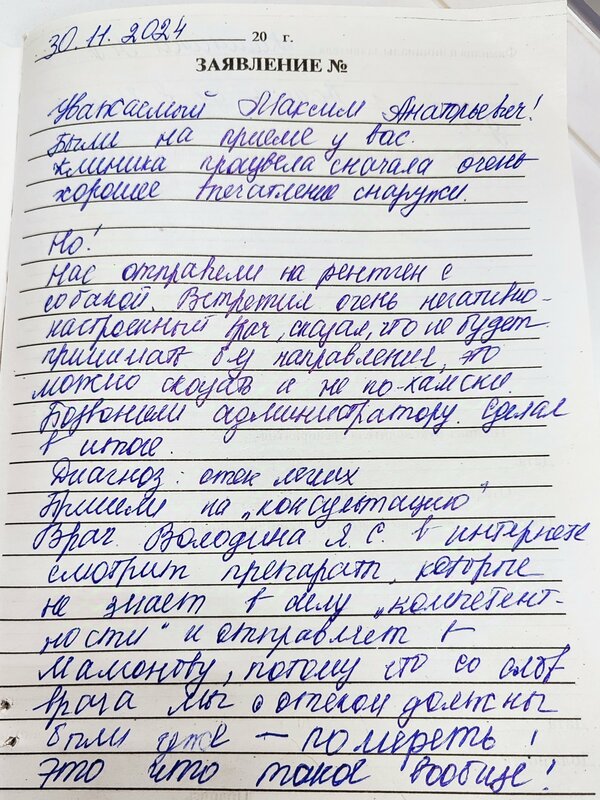 30.11.2024 20 г.
ЗАЯВЛЕНИЕ №
Уважаемый Максим Анатольевич!
Были на приеме у вас.
Клиника произвела сначала очень
хорошее впечатление снаружи.
Но!
Нас отправели на рентген с
собакой. Встретил очень негативно-
настроенный врач, сказал, что не будет
принимать без направления, это
можно сказать и не по-хамски.
Позвонили администратору. Сделал
в итоге.
Диагноз: отек легких
Пришли на „консультацию"
Врач Володина Я. С. в интернете
смотрит препарат, которые
не знает в силу „компетент-
ности" и отправляет в
Мамонтову, потому что со слов
врача мы с отеком должны
были уже – помереть!
Это что такое вообще!